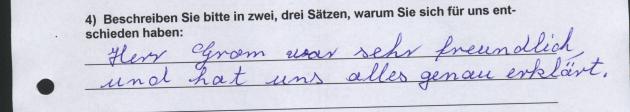 4) Beschreiben Sie bitte in zwei, drei Sätzen, warum Sie sich für uns ent-
schieden haben:
Herr Gram war sehr freundlich
und hat uns alles genau erklärt.